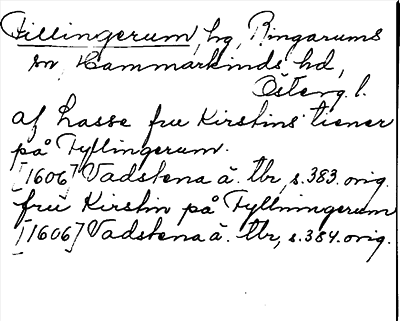 Fillingerum, hg, Ringarums
sn, Hammarkinds hd,
Österg. l.
af Lasse fru Kirstins tiener
på Tyllingerum.
[1606] Vadstena ä. tbr, s. 383. orig.
fru Kirstin på Fyllningerum
[1606] Vadstena ä. tbr, s. 384. orig.